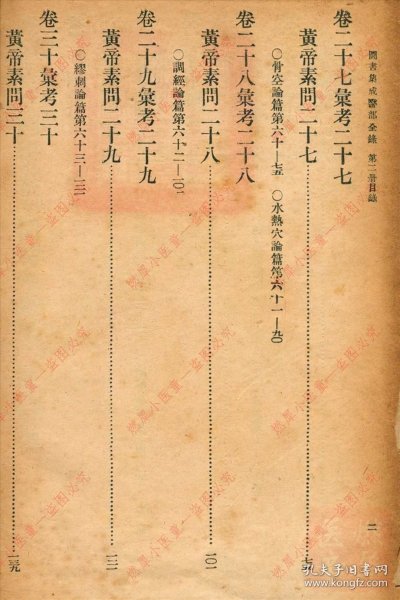 圖書集成醫部全錄 第二册目錄
二
卷二十七彙考二十七
黃帝素問二十七……七五
○骨空論篇第六十—七五 ○水熱穴論篇第六十一—九〇
卷二十八彙考二十八
黃帝素問二十八……一〇一
○調經論篇第六十二—一〇一
卷二十九彙考二十九
黃帝素問二十九……一二一
○繆刺論篇第六十三—一二一
卷三十彙考三十
黃帝素問三十……一三九
燃犀小医童—盗图必究
孔夫子旧书网
www.kongfz.com